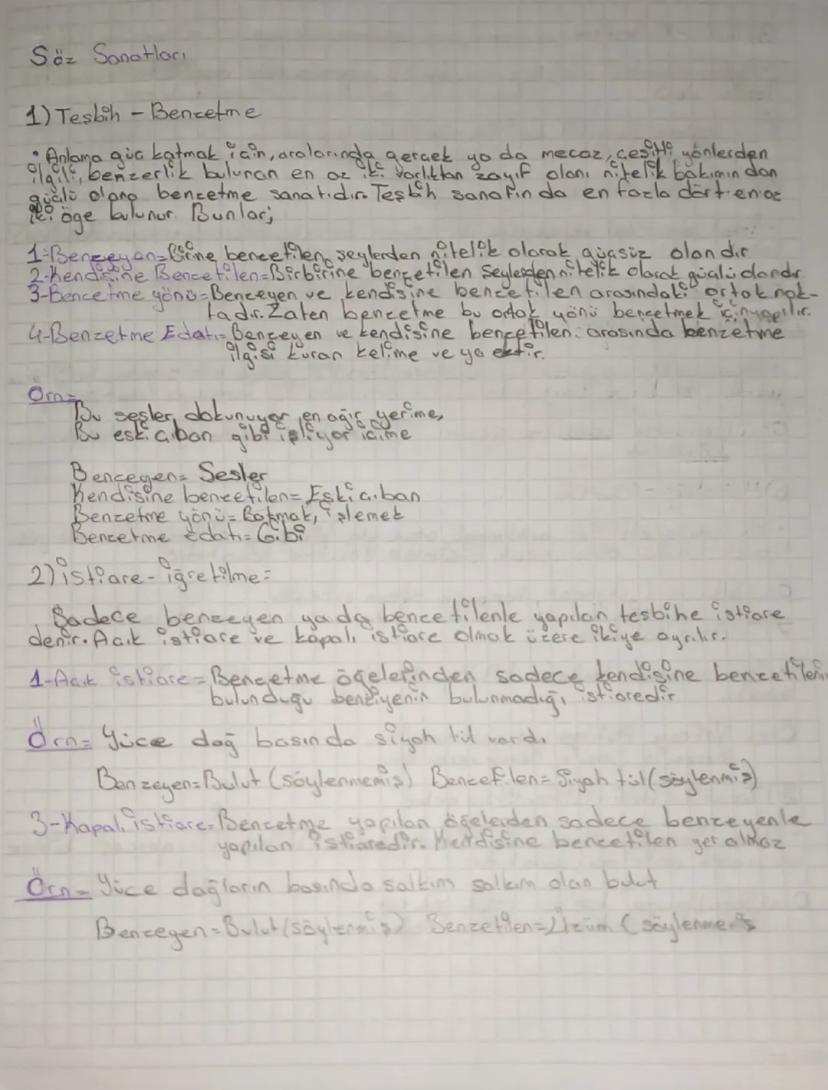 Söz Sanatları
1) Teşbih - Benzetme
• Anlama güç katmak için, aralarında gerçek ya da mecaz, çeşitli yönlerden
ilgili, benzerlik bulunan en az iki varlıktan zayıf olanı nitelik bakımından
güçlü olana benzetme sanatıdır. Teşbih sanatında en fazla dört en az
iki öge bulunur. Bunlar;
1-Benzeyen=Birine benzetilen şeylerden nitelik olarak güçsüz olandır
2-Kendisine Benzetilen=Birbirine benzetilen şeylerden nitelik olarak güçlü olandır
3-Benzetme yönü=Benzeyen ve kendisine benzetilen arasındaki ortak nok-
tadır. Zaten benzetme bu ortak yönü benzetmek için yapılır.
4-Benzetme Edatı=Benzeyen ve kendisine benzetilen arasında benzetme
ilgisi kuran kelime ve ya ektir.
Örn=
Bu sesler dokunuyor en ağır yerime,
Bu eski çıban gibi işliyor içime
Benzeyen= Sesler
Kendisine benzetilen= Eski çıban
Benzetme yönü= Batmak, işlemek
Benzetme edatı= Gibi
2) istiare - iğretilme=
Sadece benzeyen ya da benzetilenle yapılan teşbihe istiare
denir. Açık istiare ve kapalı istiare olmak üzere ikiye ayrılır.
1-Açık istiare= Benzetme öğelerinden sadece kendisine benzetilenin
bulunduğu benziyenin bulunmadığı istiaredir
Örn= Yüce dağ başında siyah tül vardı.
Benzeyen=Bulut (söylenmemiş) Benzetilen= Siyah tül (söylenmiş)
3-Kapalı istiare= Benzetme yapılan öğelerden sadece benzeyenle
yapılan istiaredir. Kendisine benzetilen yer almaz
Örn= Yüce dağların başında salkım salkım olan bulut
Benzeyen= Bulut (söylenmiş) Benzetilen= Üzüm (